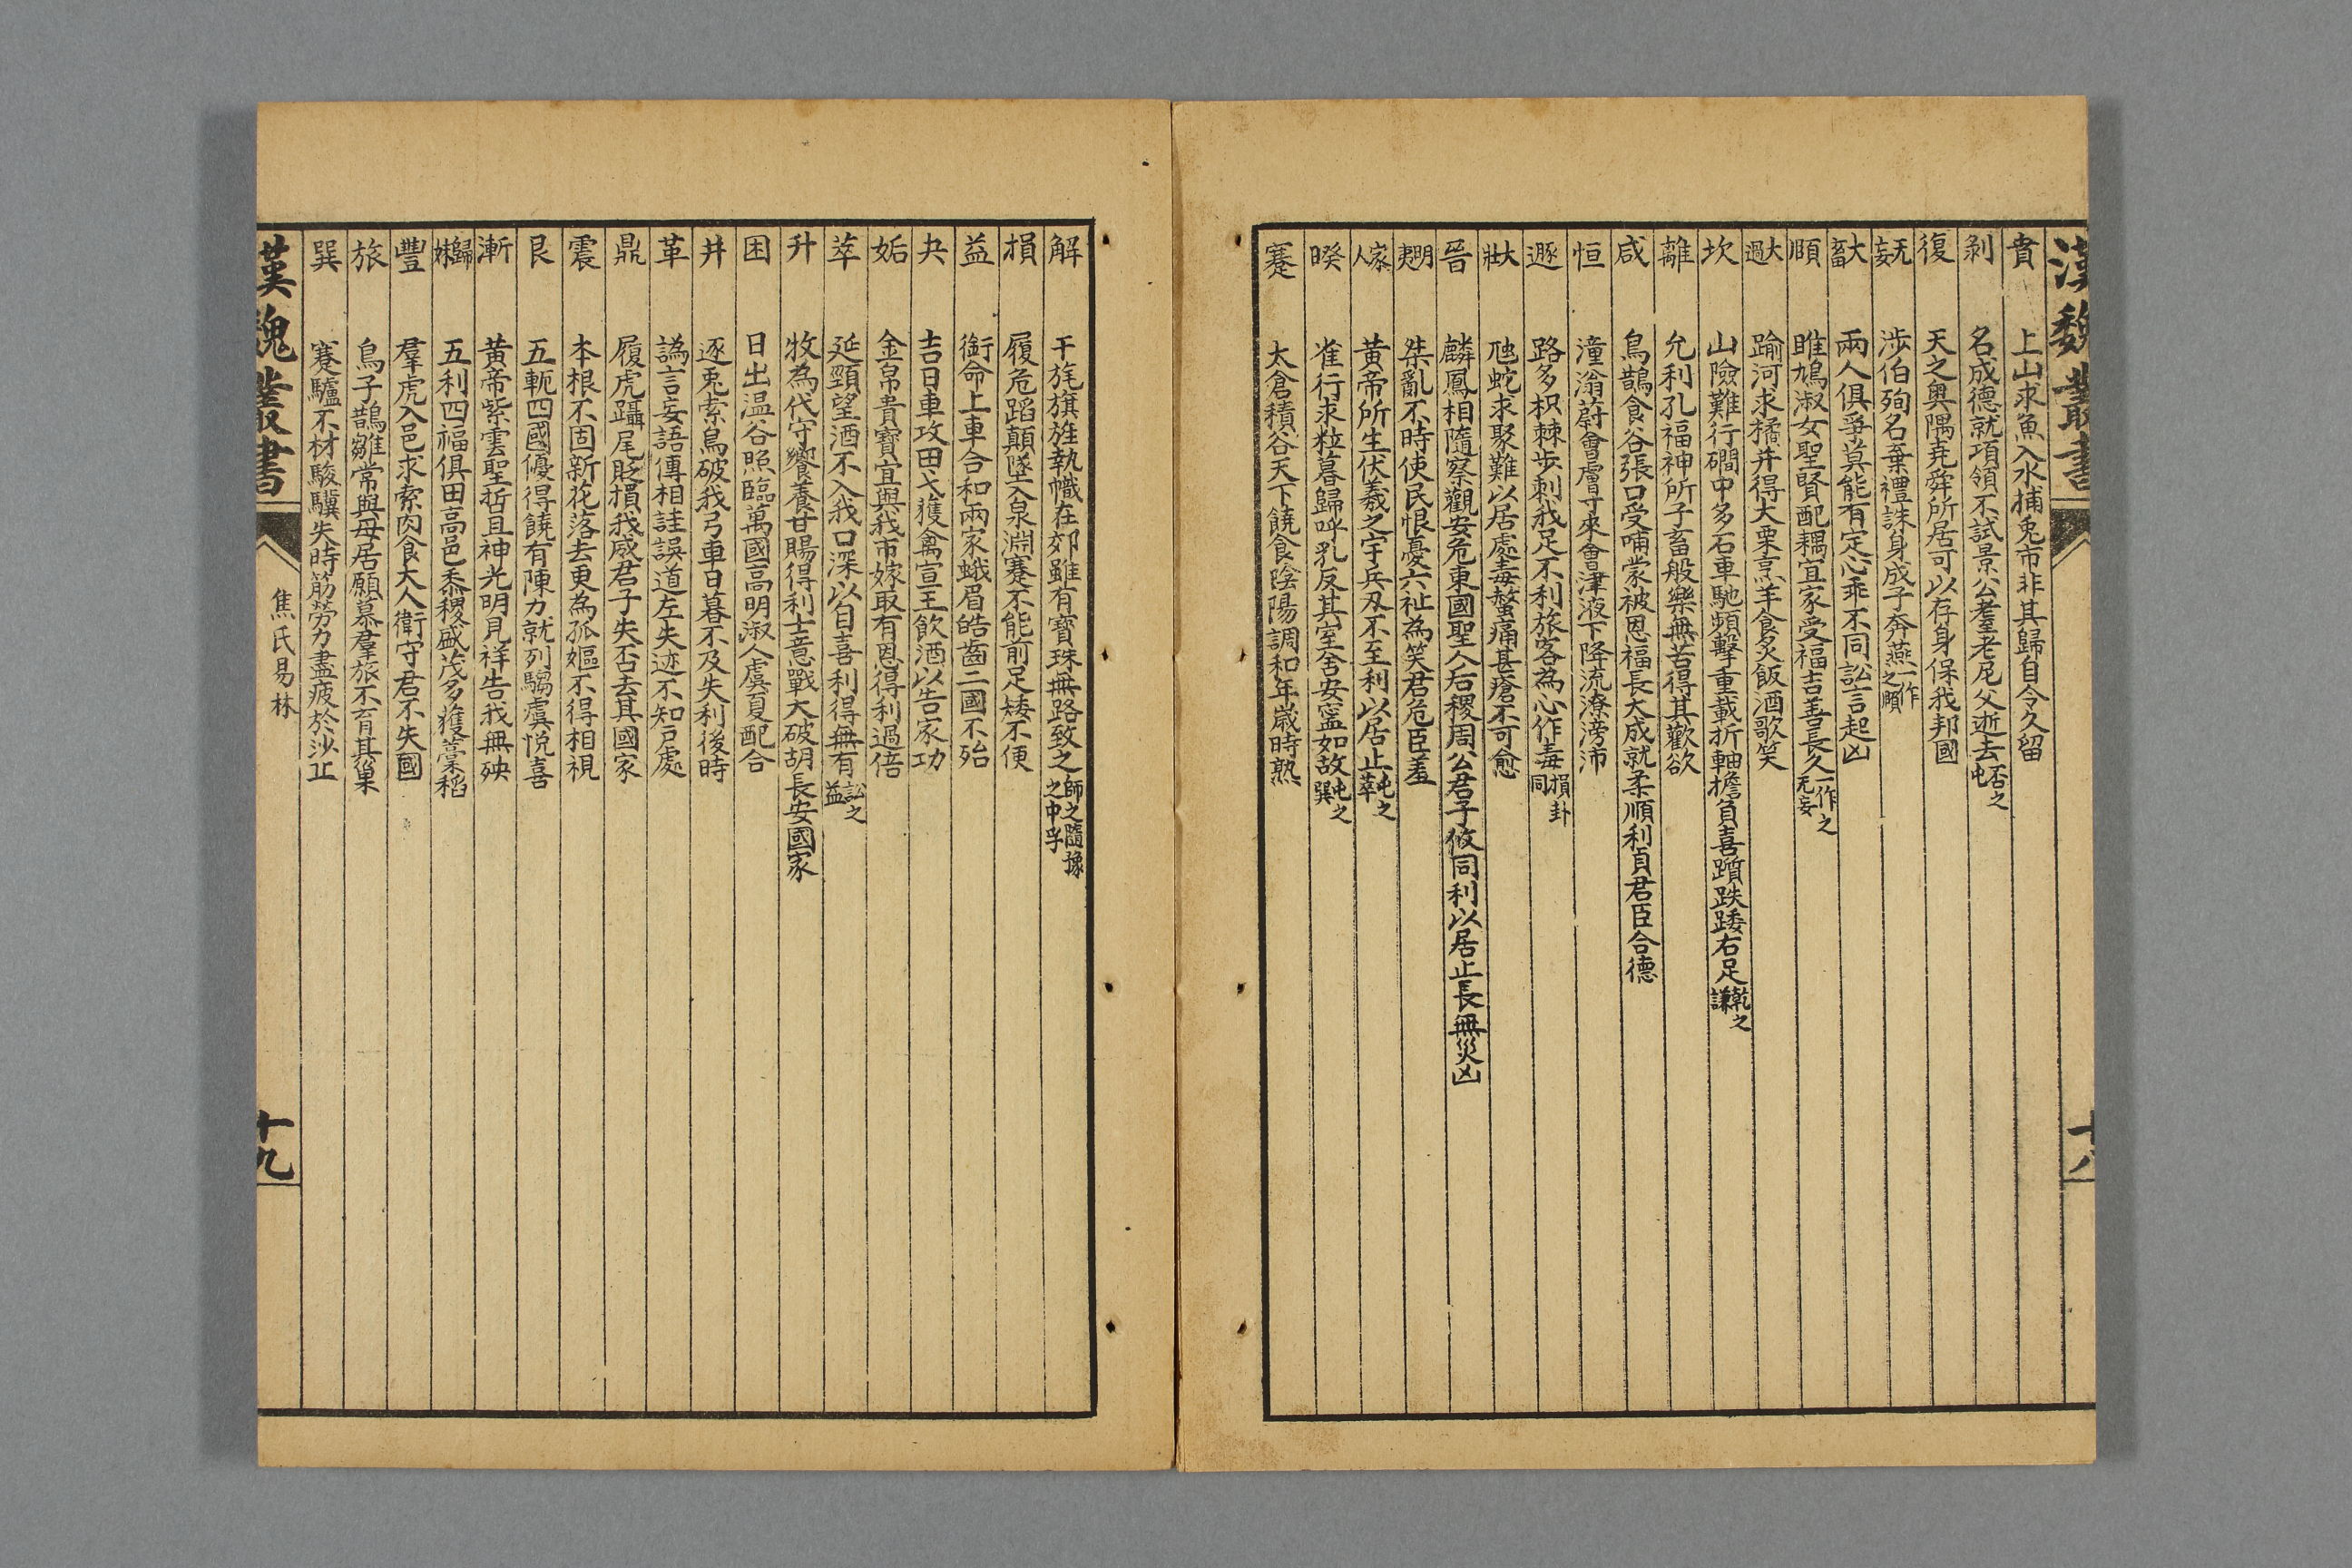 漢魏叢書
十八
賁 上山求魚入水捕兎市非其歸自令久留
剝 名成德就項領不試景公耋老尼父逝去否之屯
復 天之奧隅堯舜所居可以存身保我邦國
无妄 涉伯殉名棄禮誅身成子奔燕一作之頤
大畜 兩人俱爭莫能有定心乖不同訟言起凶
頤 雎鳩淑女聖賢配耦宜家受福吉善長久一作之无妄
大過 踰河求橘并得大栗烹羊食炙飯酒歌笑
坎 山險難行磵中多石車馳頻擊重載折軸擔負喜躓跌踒右足乾之謙
離 允利孔福神所子畜般樂無苦得其歡欲
咸 鳥鵲食谷張口受哺蒙被恩福長大成就柔順利貞君臣合德
恒 潼滃蔚薈膚寸來會津液下降流潦滂沛
遯 路多枳棘步刺我足不利旅客為心作毒損卦同
大壯 虺蛇求聚難以居處毒螫痛甚瘡不可愈
晉 麟鳳相隨察觀安危東國聖人后稷周公君子攸同利以居止長無災凶
明夷 桀亂不時使民恨憂六祉為笑君危臣羞
家人 黃帝所生伏羲之宇兵刃不至利以居止屯之萃
暌 隹行求粒暮歸呼乳反其室舍安寍如故屯之巽
蹇 太倉積谷天下饒食陰陽調和年歲時熟
解 干旄旗旌執幟在郊雖有寶珠無路致之師之隨豫之中孚
損 履危蹈顛墜入泉淵蹇不能前足矮不便
益 銜命上車合和兩家蛾眉皓齒二國不殆
夬 吉日車攻田弋獲禽宣王飲酒以告家功
姤 金帛貴寶宜與我市嫁取有恩得利過倍
萃 延頸望酒不入我口深以自喜利得無有訟之益
升 牧為代守饗養甘賜得利士意戰大破胡長安國家
困 日出温谷照臨萬國高明淑人虞夏配合
井 逐兎索烏破我弓車日暮不及失利後時
革 譌言妄語傳相詿誤道左失迹不知戶處
鼎 履虎躡尾貶損我威君子失否去其國家
震 本根不固新花落去更為孤嫗不得相視
艮 五軛四國優得饒有陳力就列騶虞悦喜
漸 黃帝紫雲聖哲且神光明見祥告我無殃
歸妹 五利四福俱田高邑黍稷盛茂多獲藁稻
豐 羣虎入邑求索肉食大人衛守君不失國
旅 烏子鵲雛常與母居願慕羣旅不有其巢
巽 蹇驢不材駿驥失時筋勞力盡疲於沙丘
漢魏叢書
焦氏易林
十九